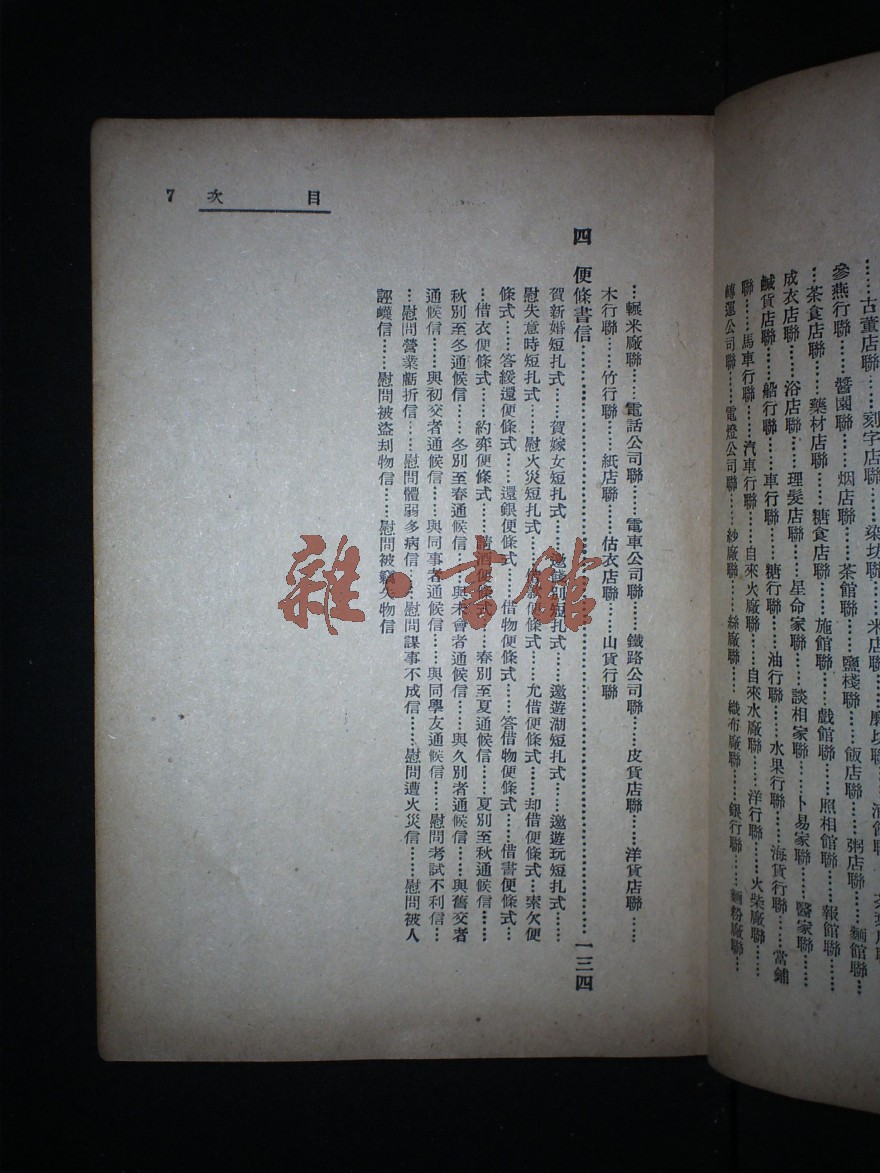 ……古董店聯……刻字店聯……染坊聯……米店聯……
參燕行聯……醬園聯……烟店聯……茶館聯……鹽棧聯……飯店聯……粥店聯……麵館聯…
…茶食店聯……藥材店聯……糖食店聯……施館聯……戲館聯……照相館聯……報館聯……
成衣店聯……浴店聯……理髮店聯……星命家聯……談相家聯……卜易家聯……醫家聯……
鹹貨店聯……船行聯……車行聯……糖行聯……油行聯……水果行聯……海貨行聯……當鋪
聯……馬車行聯……汽車行聯……自來火廠聯……自來水廠聯……洋行聯……火柴廠聯……
轉運公司聯……電燈公司聯……紗廠聯……絲廠聯……織布廠聯……銀行聯……麵粉廠聯…
目次 7
…輾米廠聯……電話公司聯……電車公司聯……鐵路公司聯……皮貨店聯……洋貨店聯……
木行聯……竹行聯……紙店聯……估衣店聯……山貨行聯
四 便條書信……一三四
賀新婚短扎式……賀嫁女短扎式……邀餞別短扎式……邀遊湖短扎式……邀遊玩短扎式…
慰失意時短扎式……慰火災短扎式……借銀便條式……允借便條式……却借便條式…索欠便
條式……答緩還便條式……還銀便條式……借物便條式……答借物便條式……借書便條式…
…借衣便條式……約弈便條式……請酒便條式……春別至夏通候信……夏別至秋通候信……
秋別至冬通候信……冬別至春通候信……與未會者通候信……與久別者通候信……與舊交者
通候信……與初交者通候信……與同事者通候信……與同學友通候信……慰問考試不利信…
…慰問營業虧折信……慰問體弱多病信……慰問謀事不成信……慰問遭火災信……慰問被人
誣衊信……慰問被盜刦物信……慰問被竊失物信
雜·書館